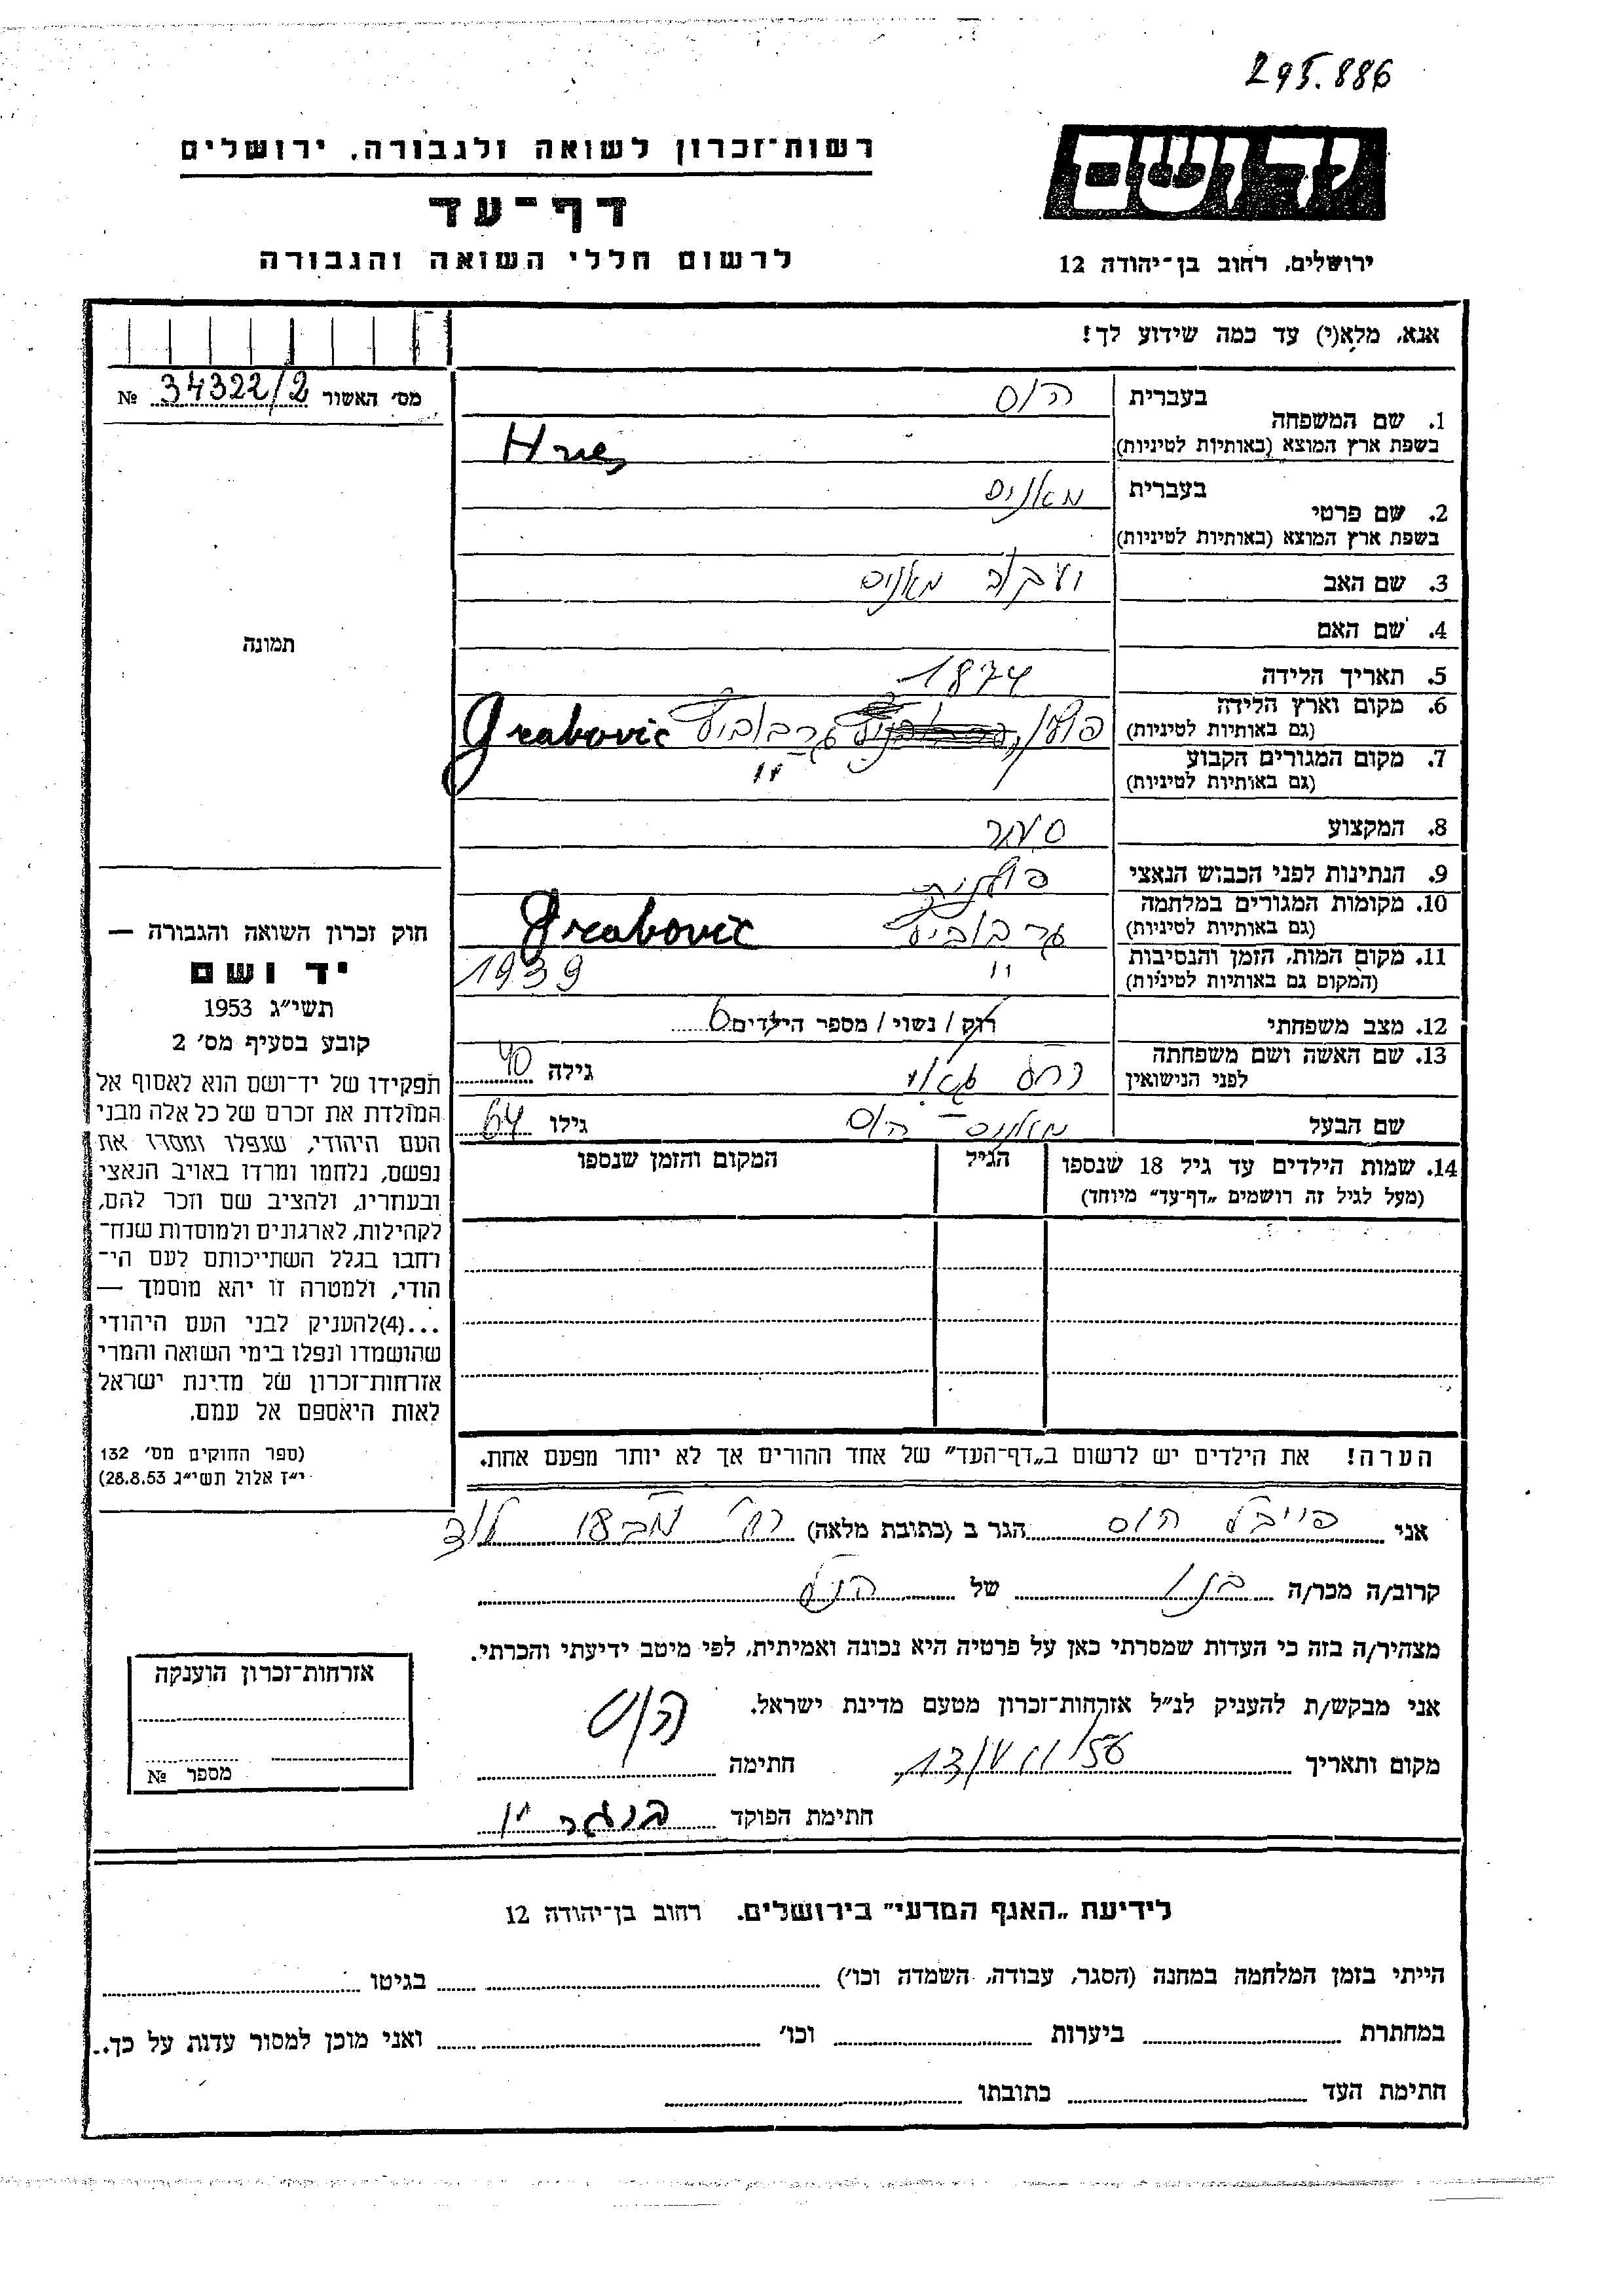 295.886
יד ושם
רשות־זכרון לשואה ולגבורה, ירושלים
דף־עד
לרשום חללי השואה והגבורה
ירושלים, רחוב בן־יהודה 12
אנא, מלא(י) עד כמה שידוע לך!
מס׳ האשור 34322/2 №
1. שם המשפחה
בעברית הוס
בשפת ארץ המוצא (באותיות לטיניות)
2. שם פרטי
בעברית מאניס
בשפת ארץ המוצא (באותיות לטיניות)
3. שם האב יעקב מאניס
4. שם האם
5. תאריך הלידה 1874
6. מקום וארץ הלידה
(גם באותיות לטיניות) פולין, Grabovic
7. מקום המגורים הקבוע "
(גם באותיות לטיניות)
8. המקצוע סוחר
9. הנתינות לפני הכבוש הנאצי פולנית
10. מקומות המגורים במלחמה
(גם באותיות לטיניות) Grabovic
11. מקום המות, הזמן והנסיבות " 1939
(המקום גם באותיות לטיניות)
12. מצב משפחתי רווק / נשוי / מספר הילדים 6
13. שם האשה ושם משפחתה
לפני הנישואין גילה 40
שם הבעל מאניס הוס גילו 64
14. שמות הילדים עד גיל 18 שנספו
(מעל לגיל זה רושמים „דף־עד״ מיוחד)
הגיל
המקום והזמן שנספו
הערה! את הילדים יש לרשום ב„דף־העד״ של אחד ההורים אך לא יותר מפעם אחת.
תמונה
חוק זכרון השואה והגבורה —
יד ושם
תשי״ג 1953
קובע בסעיף מס׳ 2
תפקידו של יד־ושם הוא לאסוף אל
המולדת את זכרם של כל אלה מבני
העם היהודי, שנפלו ומסרו את
נפשם, נלחמו ומרדו באויב הנאצי
ובעוזריו, ולהציב שם וזכר להם,
לקהילות, לארגונים ולמוסדות שנח־
רבו בגלל השתייכותם לעם הי־
הודי, ולמטרה זו יהא מוסמך —
...(4)להעניק לבני העם היהודי
שהושמדו ונפלו בימי השואה והמרי
אזרחות־זכרון של מדינת ישראל
לאות היאספם אל עמם.
(ספר החוקים מס׳ 132
י״ז אלול תשי״ג 28.8.53)
אני פייבל הוס הגר ב (כתובת מלאה) לוד
קרוב/ה מכר/ה בנו של הנ״ל
מצהיר/ה בזה כי העדות שמסרתי כאן על פרטיה היא נכונה ואמיתית, לפי מיטב ידיעתי והכרתי.
אני מבקש/ת להעניק לנ״ל אזרחות־זכרון מטעם מדינת ישראל.
מקום ותאריך חתימה הוס
חתימת הפוקד
אזרחות־זכרון הוענקה
מספר №
לידיעת „האגף המדעי״ בירושלים, רחוב בן־יהודה 12
הייתי בזמן המלחמה במחנה (הסגר, עבודה, השמדה וכו׳) בגיטו
במחתרת ביערות וכו׳ ואני מוכן למסור עדות על כך.
חתימת העד כתובתו